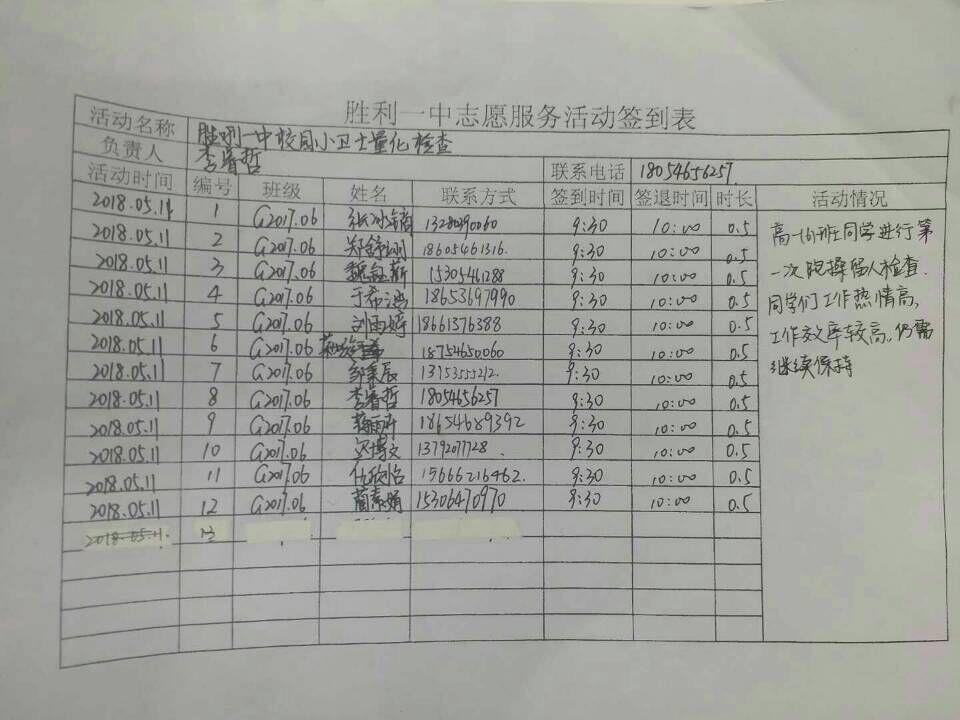 胜利一中志愿服务活动签到表
活动名称 胜利一中校园小卫士量化检查
负责人 李睿哲 联系电话 18054656257
活动时间 编号 班级 姓名 联系方式 签到时间 签退时间 时长 活动情况
2018.05.11 1 G2017.06 13280290060 9:30 10:00 0.5
2018.05.11 2 G2017.06 18605461316 9:30 10:00 0.5
2018.05.11 3 G2017.06 15305461288 9:30 10:00 0.5
2018.05.11 4 G2017.06 于希 18653697990 9:30 10:00 0.5
2018.05.11 5 G2017.06 刘雨婷 18661376388 9:30 10:00 0.5
2018.05.11 6 G2017.06 18754650060 9:30 10:00 0.5
2018.05.11 7 G2017.06 9:30 10:00 0.5
2018.05.11 8 G2017.06 李睿哲 18054656257 9:30 10:00 0.5
2018.05.11 9 G2017.06 18654689392 9:30 10:00 0.5
2018.05.11 10 G2017.06 博文 13792077728 9:30 10:00 0.5
2018.05.11 11 G2017.06 15666216462 9:30 10:00 0.5
2018.05.11 12 G2017.06 蔺素娟 15306470970 9:30 10:00 0.5
2018.05.11 13
高一16班同学进行第
一次跑操留人检查.
同学们工作热情高,
工作效率较高,仍需
继续保持